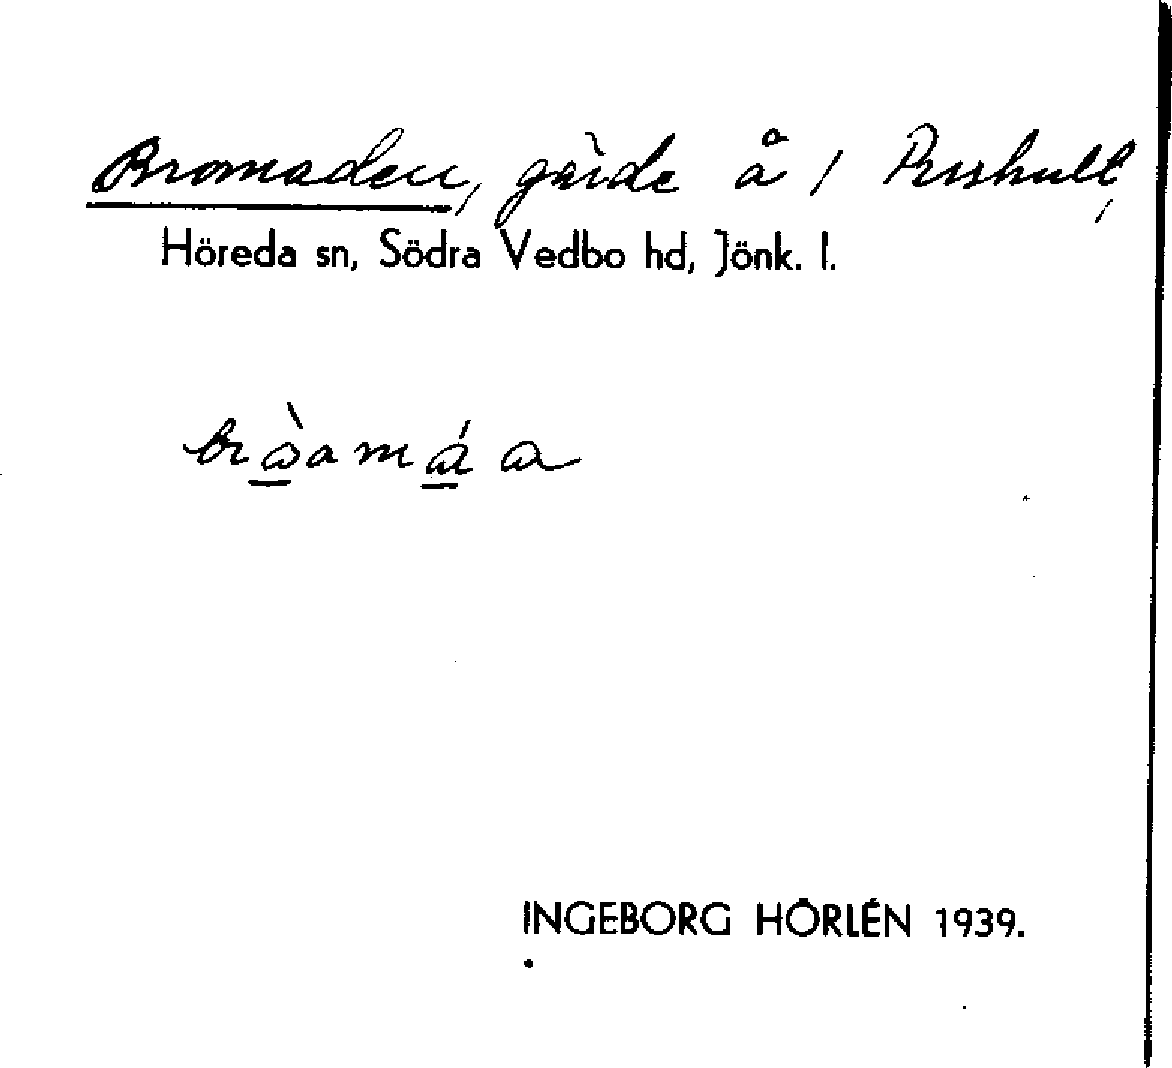 Bromaden, gärde å 1 Prishult,
Höreda sn, Södra Vedbo hd, Jönk. l.
INGEBORG HÖRLÉN 1939.